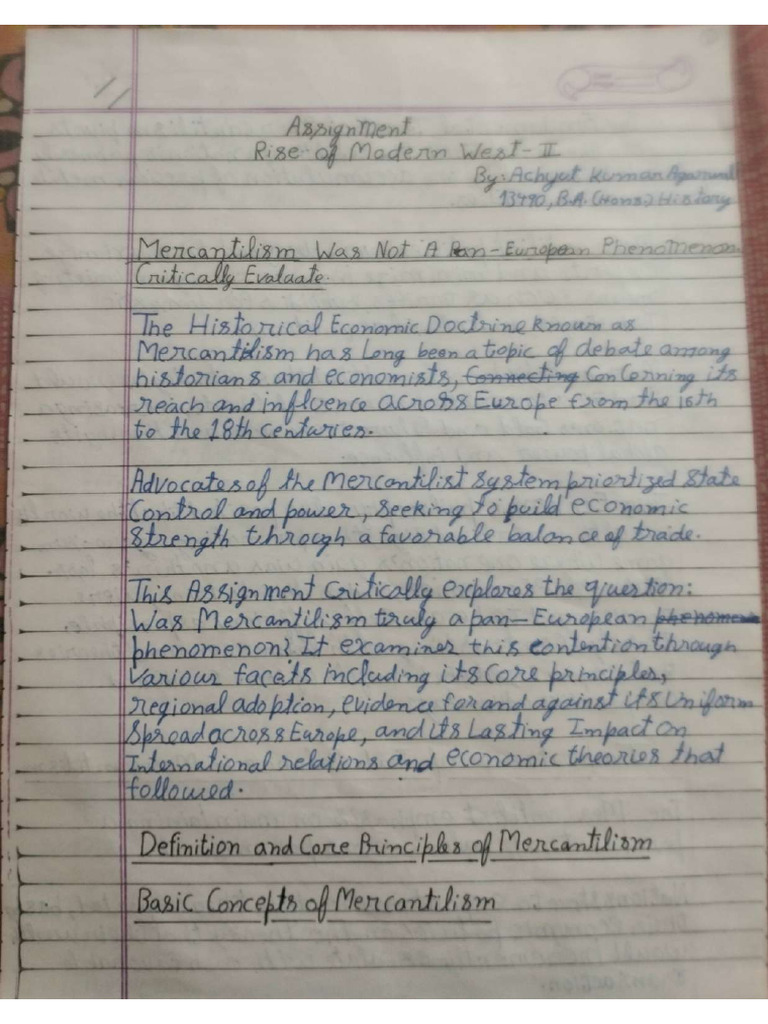 Assignment
Rise of Modern West-II
By: Achyut Kumar Agarwal
13790, B.A. (Hons.) History
Mercantilism Was Not A Pan-European Phenomenon
Critically Evaluate.
The Historical Economic Doctrine known as
Mercantilism has long been a topic of debate among
historians and economists, Connecting Concerning its
reach and influence across Europe from the 16th
to the 18th centuries.
Advocates of the Mercantilist system priortized State
Control and power, seeking to build economic
strength through a favorable balance of trade.
This Assignment Critically explores the question:
Was Mercantilism truly a pan-European
phenomenon? It examines this contention through
various facets including its core principles,
regional adoption, evidence for and against its Uniform
Spread across Europe, and its Lasting Impact On
International relations and economic theories that
followed.
Definition and Core Principles of Mercantilism
Basic Concepts of Mercantilism